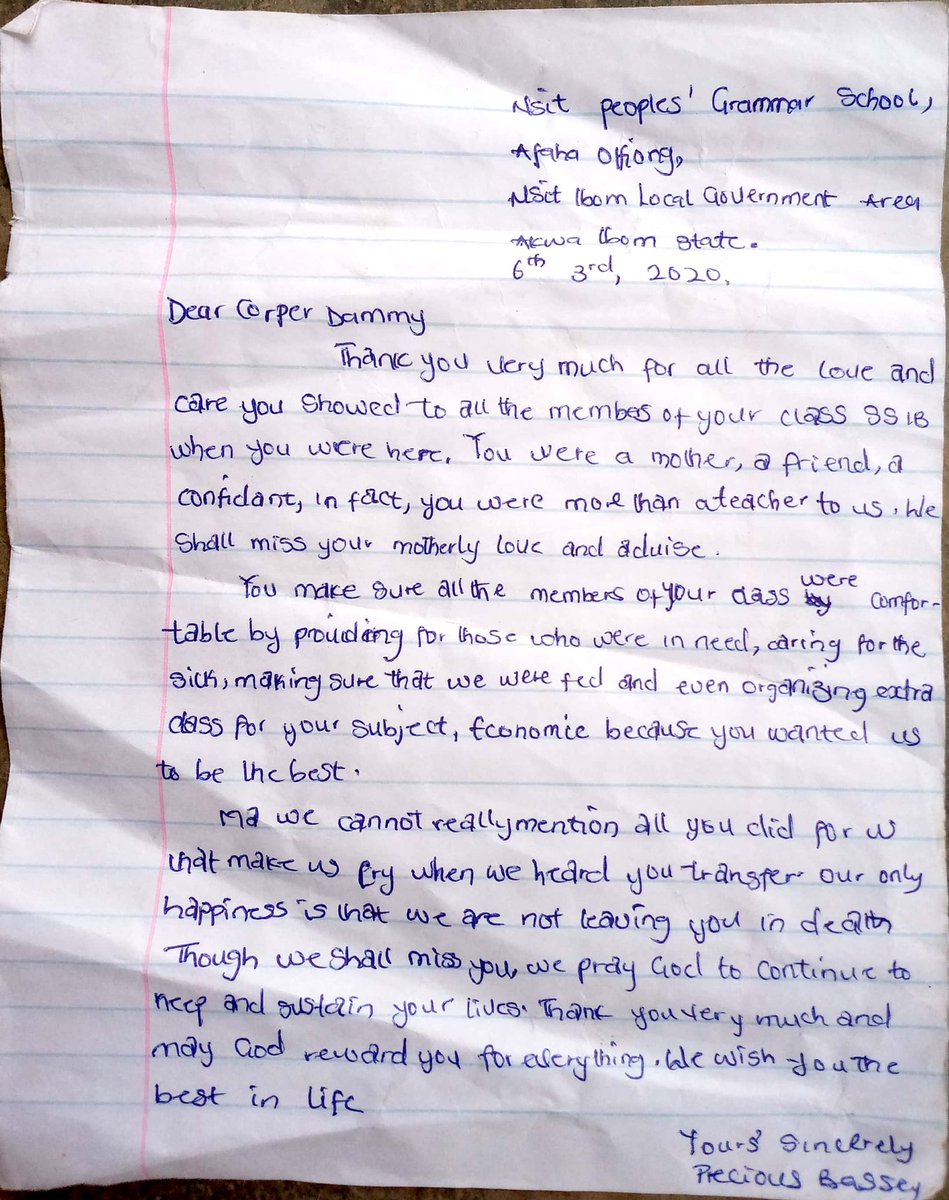 Nsit peoples' Grammar School,
Afaha Offiong,
Nsit Ibom Local Government Area
Akwa Ibom State.
6th 3rd, 2020.
Dear Corper Dammy
Thank you very much for all the love and
care you showed to all the membes of your class SS1B
when you were here. You were a mother, a friend, a
confidant, in fact, you were more than a teacher to us. We
shall miss your motherly love and advise.
You make sure all the members of your class were comfor-
table by providing for those who were in need, caring for the
sick, making sure that we were fed and even organizing extra
class for your subject, Economic because you wanted us
to be the best.
Ma we cannot really mention all you did for us
that make us cry when we heard you transfer. our only
happiness is that we are not leaving you in death
Though we shall miss you, we pray God to continue to
keep and sustain your lives. Thank you very much and
may God reward you for everything. We wish you the
best in life
Yours' Sincerely
Precious Bassey